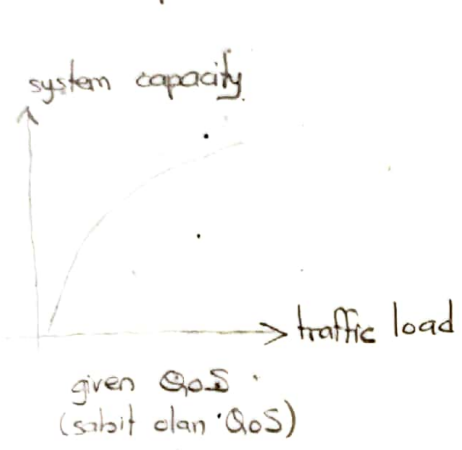 system capacity
traffic load
given QoS
(sabit olan QoS)